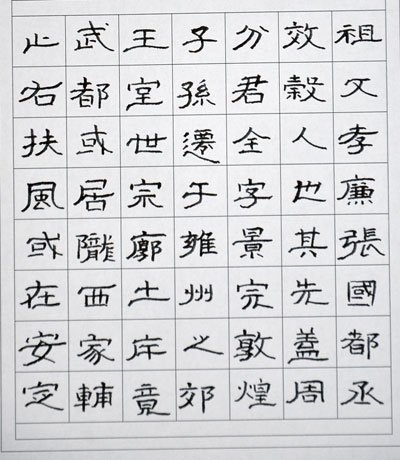 祖父孝廉張國都丞
效穀人也其先蓋周
分君全字景完敦煌
子孫遷于雍州之郊
王室世宗廓土斥竟
武都或居隴西家輔
止右扶風或在安定